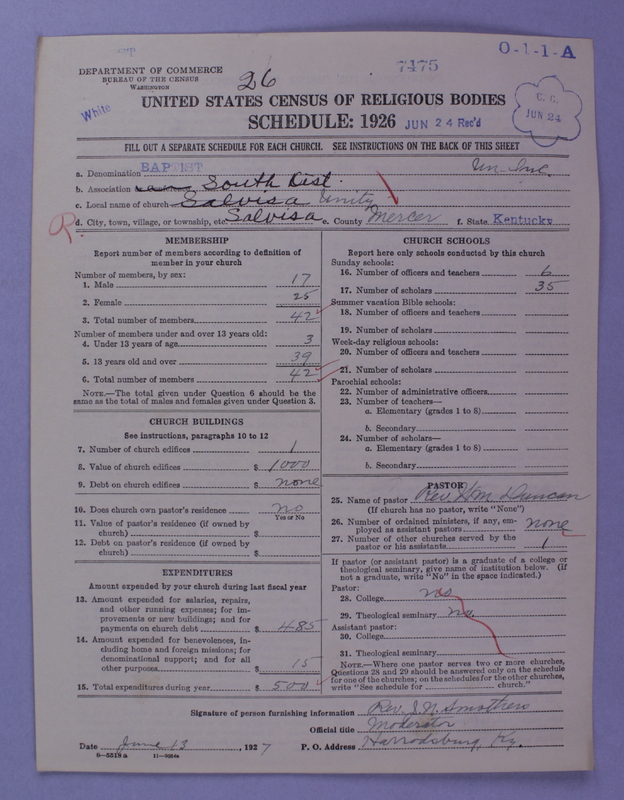 O-1-1-A
7475
DEPARTMENT OF COMMERCE
BUREAU OF THE CENSUS
WASHINGTON
26
White
UNITED STATES CENSUS OF RELIGIOUS BODIES
SCHEDULE: 1926 JUN 24 Rec'd
C. C.
JUN 24
FILL OUT A SEPARATE SCHEDULE FOR EACH CHURCH. SEE INSTRUCTIONS ON THE BACK OF THIS SHEET
a. Denomination BAPTIST
b. Association South Dist.
c. Local name of church Salvisa Unity
R.
d. City, town, village, or township, etc. Salvisa e. County Mercer f. State Kentucky
MEMBERSHIP
Report number of members according to definition of
member in your church
Number of members, by sex:
1. Male 17
2. Female 25
3. Total number of members 42
Number of members under and over 13 years old:
4. Under 13 years of age 3
5. 13 years old and over 39
6. Total number of members 42
NOTE.—The total given under Question 6 should be the
same as the total of males and females given under Question 3.
CHURCH BUILDINGS
See instructions, paragraphs 10 to 12
7. Number of church edifices 1
8. Value of church edifices $ 1000
9. Debt on church edifices $ none
10. Does church own pastor's residence no
Yes or No
11. Value of pastor's residence (if owned by
church) $
12. Debt on pastor's residence (if owned by
church) $
EXPENDITURES
Amount expended by your church during last fiscal year
13. Amount expended for salaries, repairs,
and other running expenses; for im-
provements or new buildings; and for
payments on church debt $ 485
14. Amount expended for benevolences, in-
cluding home and foreign missions; for
denominational support; and for all
other purposes $ 15
15. Total expenditures during year $ 500
CHURCH SCHOOLS
Report here only schools conducted by this church
Sunday schools:
16. Number of officers and teachers 6
17. Number of scholars 35
Summer vacation Bible schools:
18. Number of officers and teachers
19. Number of scholars
Week-day religious schools:
20. Number of officers and teachers
21. Number of scholars
Parochial schools:
22. Number of administrative officers
23. Number of teachers—
a. Elementary (grades 1 to 8)
b. Secondary
24. Number of scholars—
a. Elementary (grades 1 to 8)
b. Secondary
PASTOR
25. Name of pastor Rev. H.M. Duncan
(If church has no pastor, write "None")
26. Number of ordained ministers, if any, em-
ployed as assistant pastors none
27. Number of other churches served by the
pastor or his assistants 1
If pastor (or assistant pastor) is a graduate of a college or
theological seminary, give name of institution below. (If
not a graduate, write "No" in the space indicated.)
Pastor:
28. College
29. Theological seminary no.
Assistant pastor:
30. College
31. Theological seminary
NOTE.—Where one pastor serves two or more churches,
Questions 28 and 29 should be answered only on the schedule
for one of the churches; on the schedules for the other churches,
write "See schedule for church."
Signature of person furnishing information Rev. J.N. Smothers
Official title Moderator
Date June 13, 1927 P. O. Address Harrodsburg, Ky.
8-5518 a